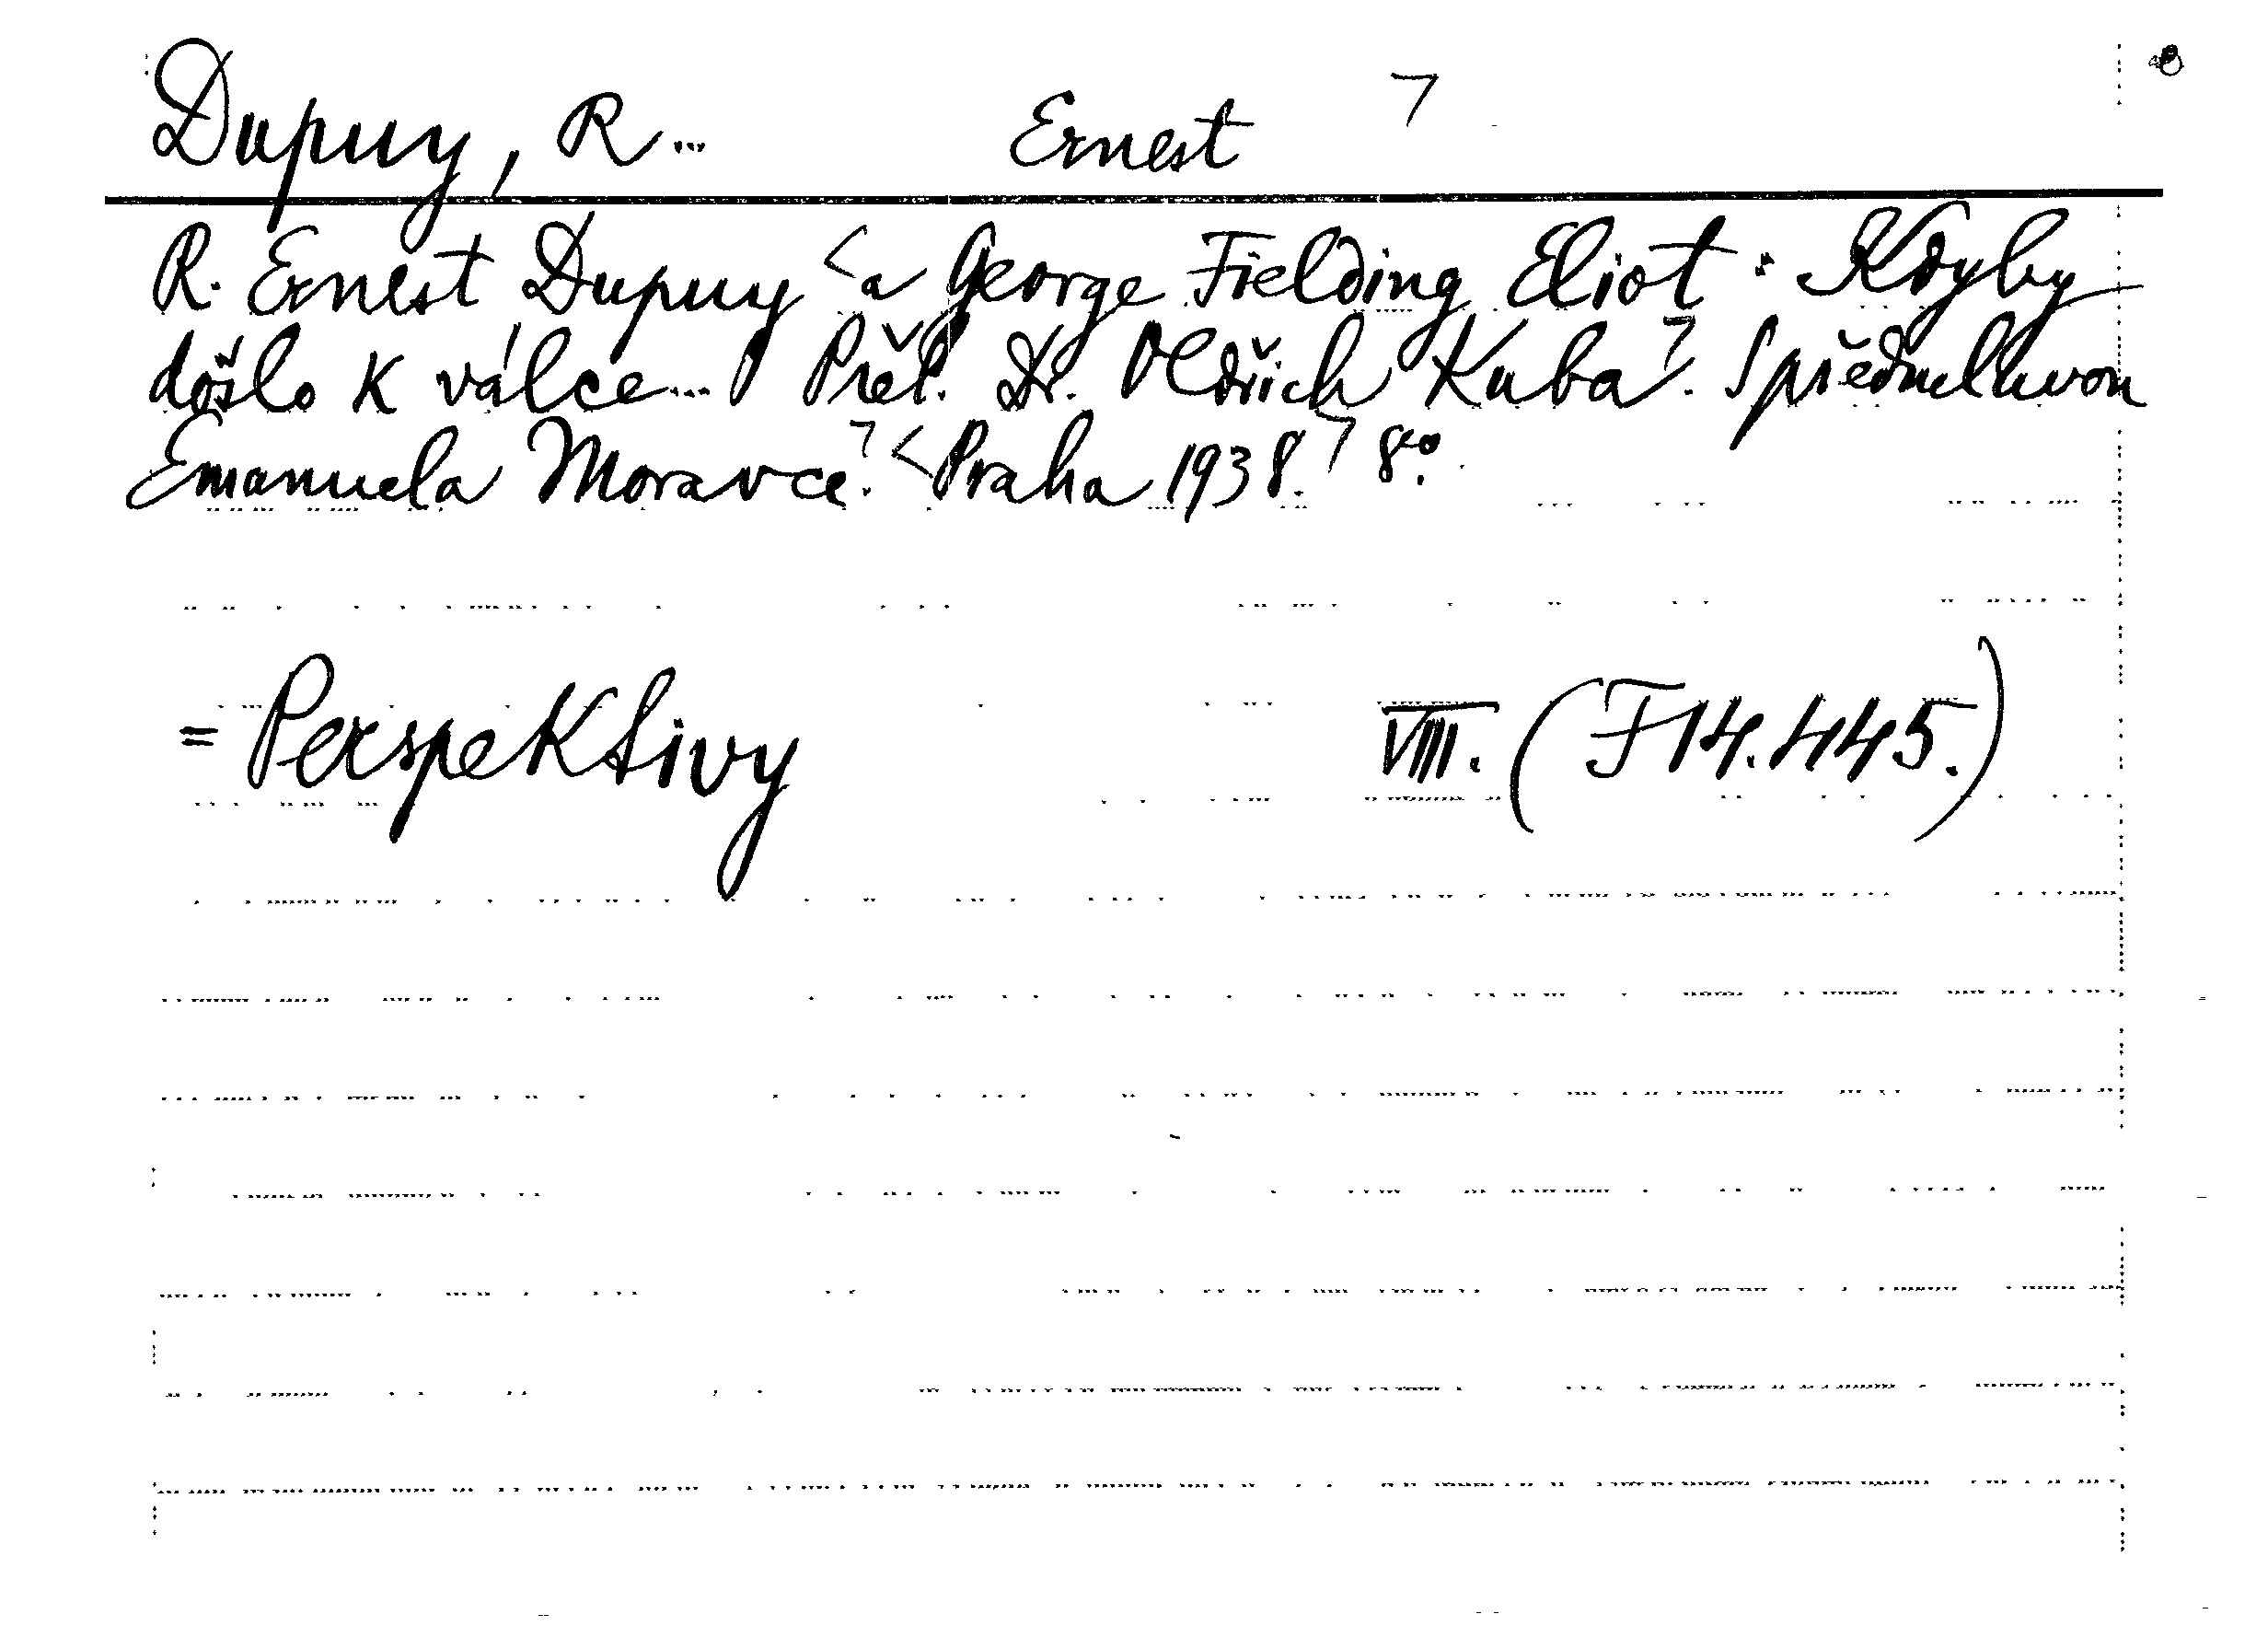 Dupuy, R... Ernest ㄱ
R. Ernest Dupuy <a George Fielding Eliot: Kdyby
došlo k válce... Přel. Dr. Oldřich Kuba ㄱ. S předmluvou
Emanuela Moravce ㄱ. <Praha 1938 ㄱ 8°.
= Perspektivy VIII. (F 14.445.)